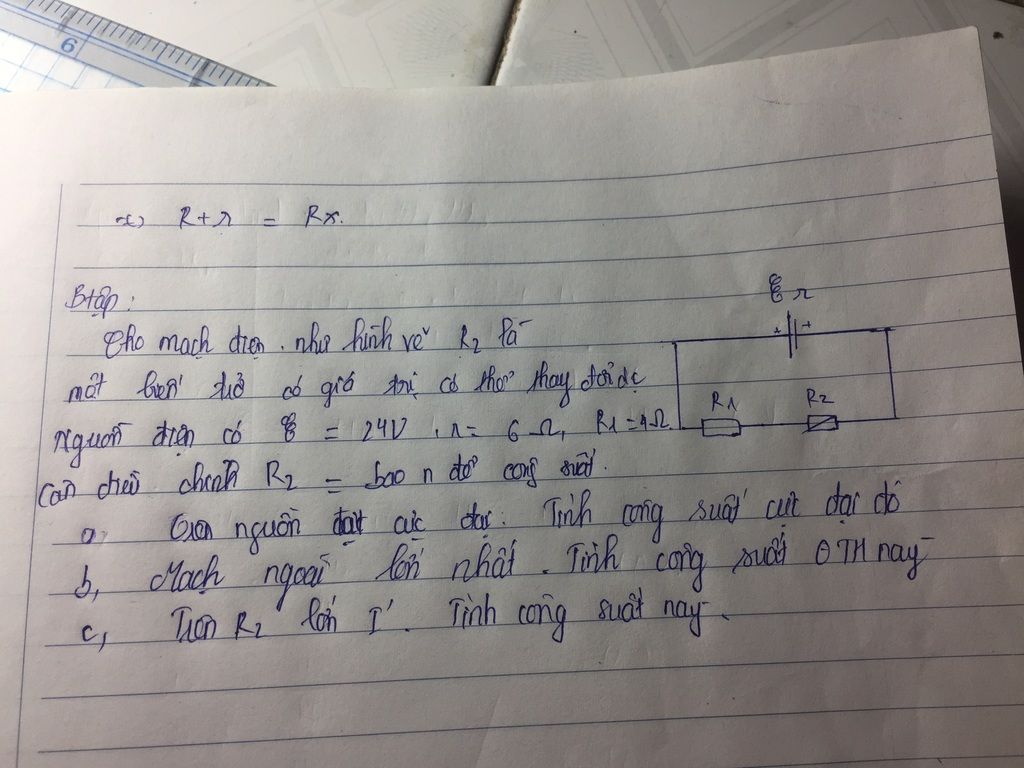 6
=> R + r = Rx.
Btập:
Cho mạch điện như hình vẽ R2 là
một biến trở có giá trị có thể thay đổi đc
Nguồn điện có ξ = 24V, r = 6Ω, R1 = 4Ω
Cần điều chỉnh R2 = bao n để công suất.
a, nguồn đạt cực đại. Tính công suất cực đại đó
b, Mạch ngoài lớn nhất. Tính công suất ở TH này
c, Trên R2 lớn I'. Tính công suất này.
ξ r
R1 R2